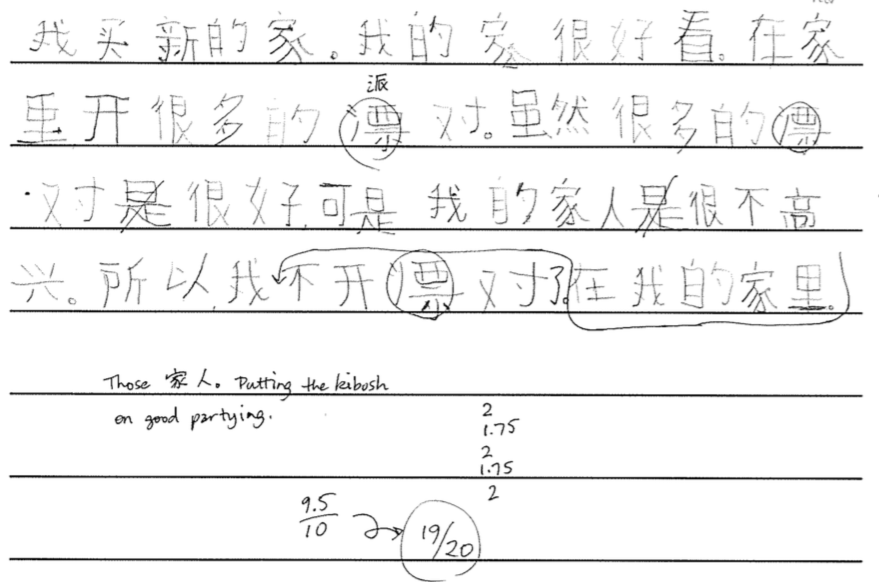 我买新的家。我的家很好看。在家
派
里开很多的漂对。虽然很多的漂
对是很好,可是我的家人是很不高
兴。所以,我不开漂对了。在我的家里。
Those 家人。Putting the kibosh
on good partying.
2
1.75
2
1.75
2
9.5
10
19/20